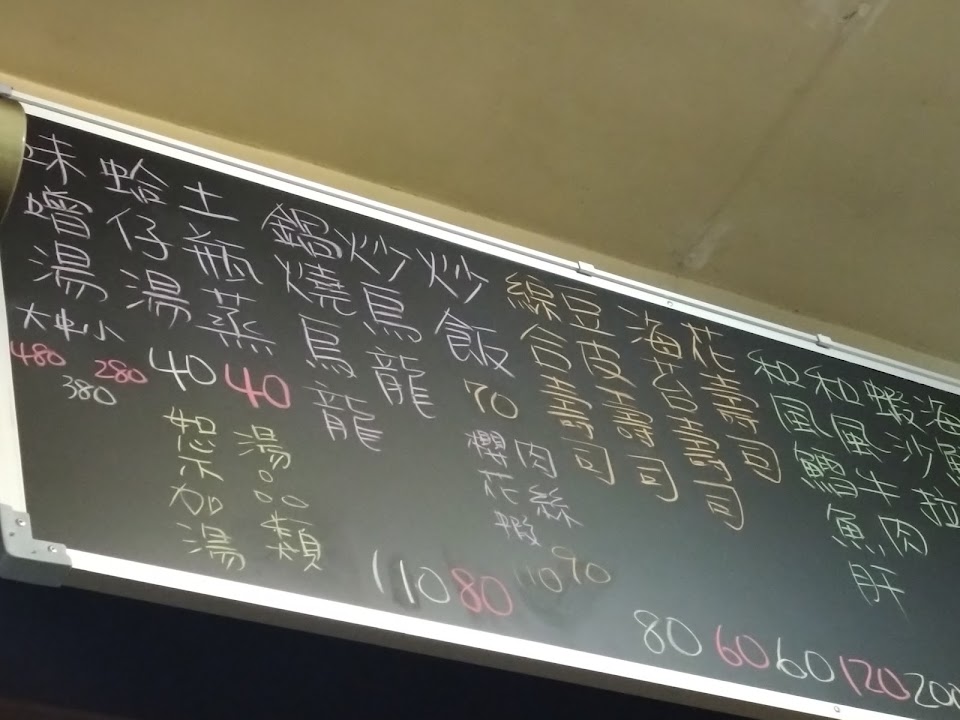 海
蝦沙拉
和風牛肉
和風鱈魚肝
花壽司
海苔壽司
豆皮壽司
綜合壽司
80 60 60 120 200
炒飯
70
肉絲
90
櫻花蝦
110
炒烏龍
80
鍋燒烏龍
110
土瓶蒸
40
蛤仔湯
40
味噌湯
大中小
480 380 280
湯品類
恕不加湯